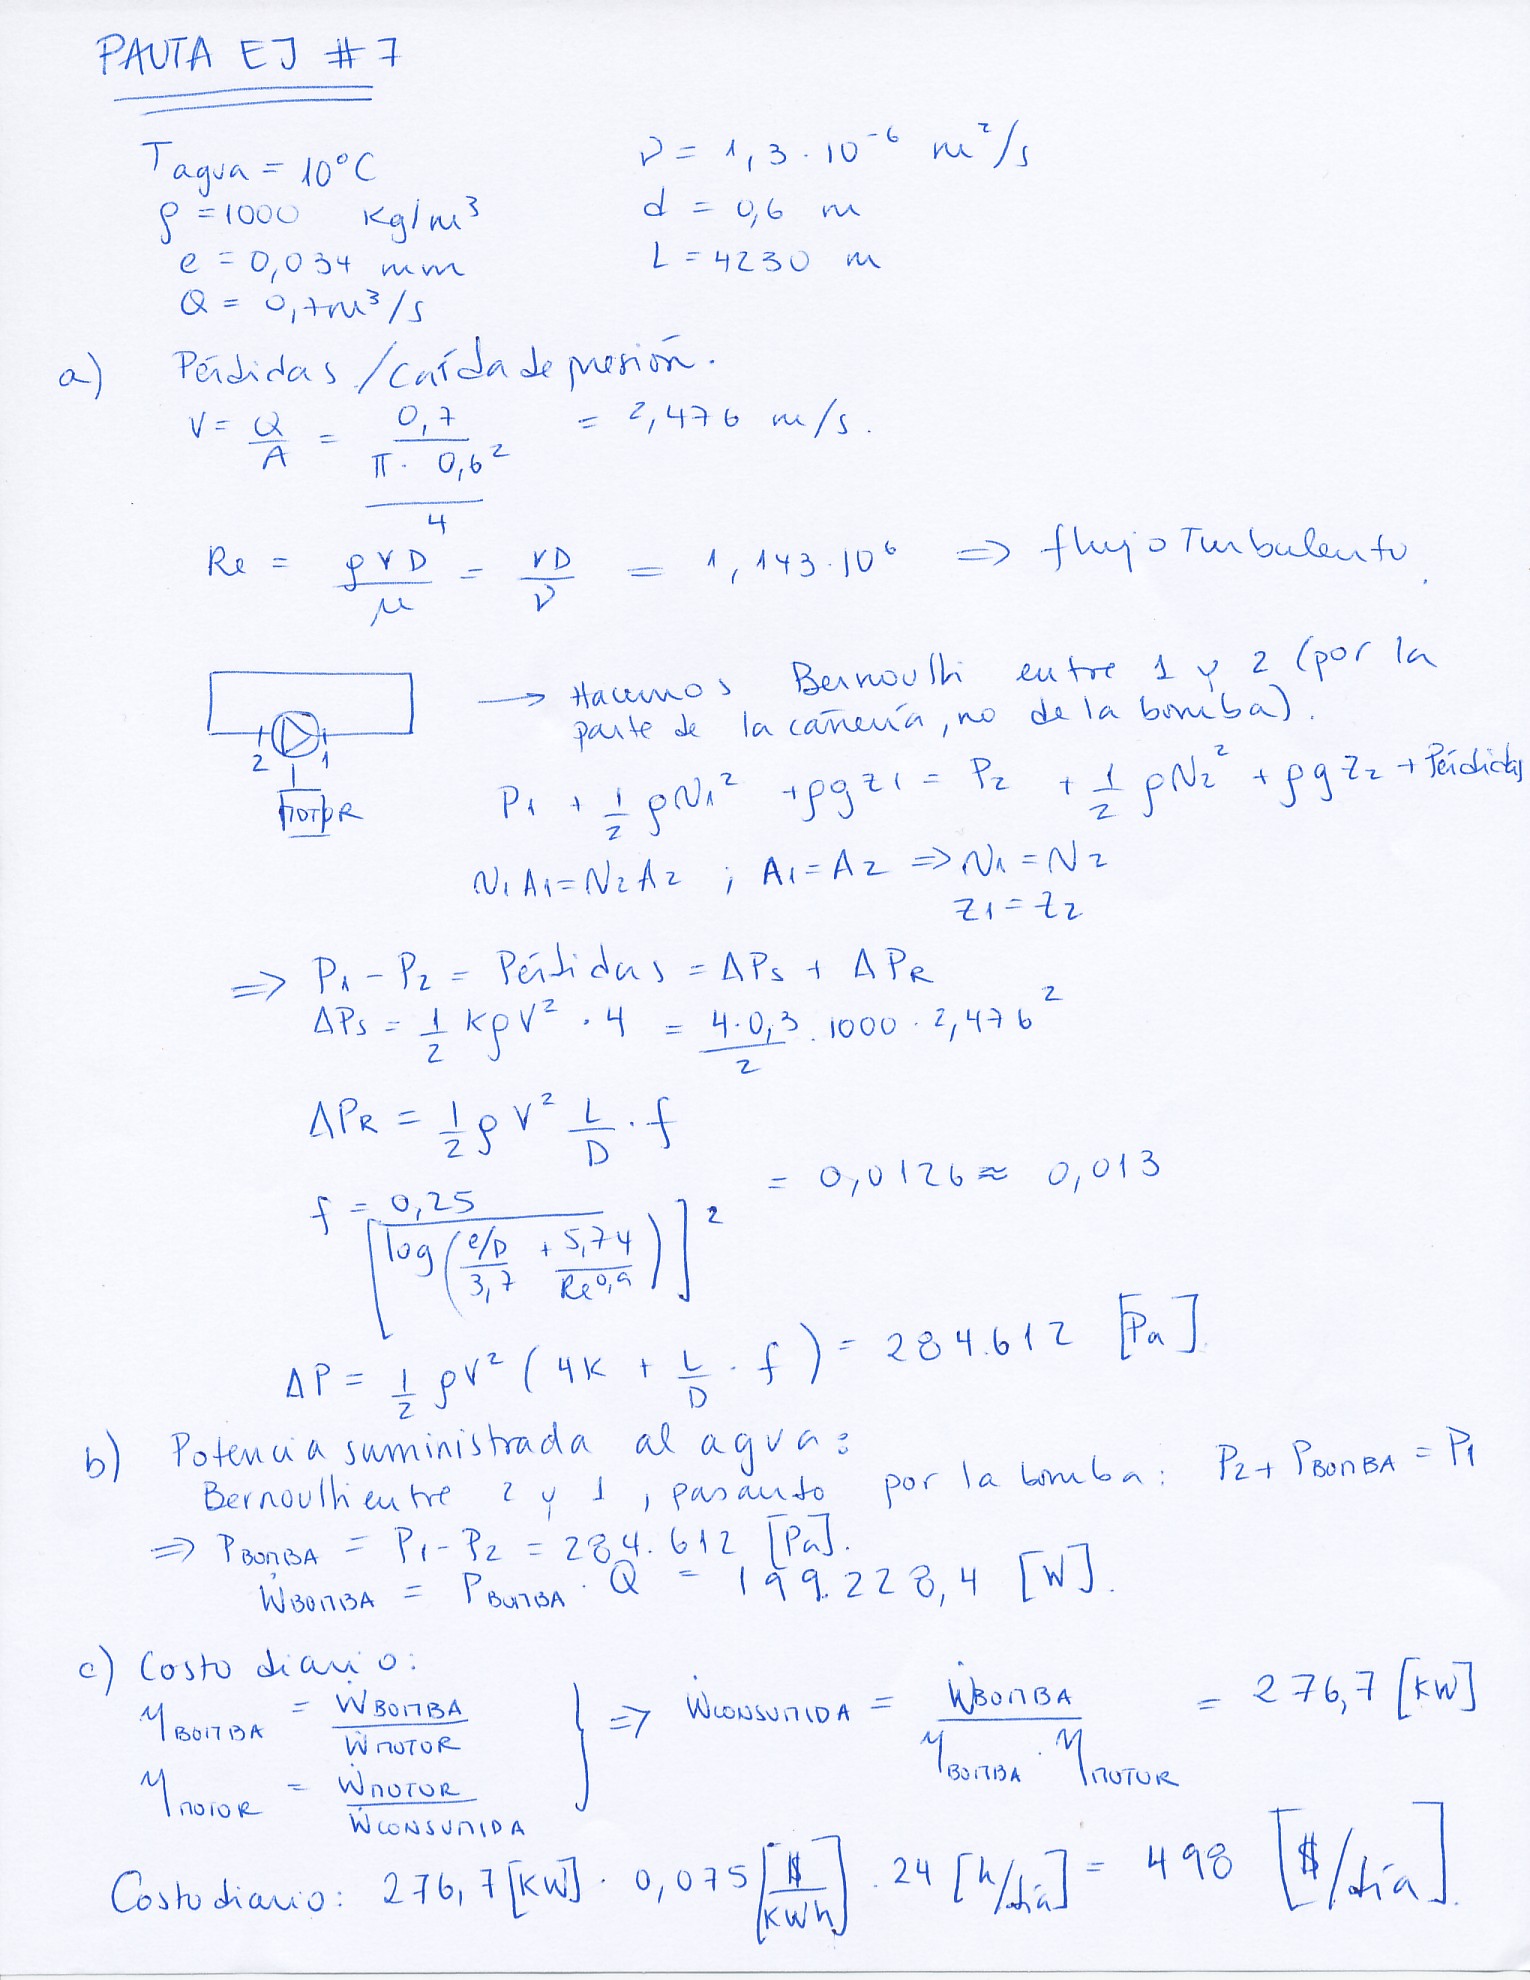 PAUTA EJ #7
Tagua = 10°C
ρ = 1000 Kg/m³
e = 0,034 mm
Q = 0,7m³/s
ν = 1,3 · 10⁻⁶ m²/s
d = 0,6 m
L = 4230 m
a) Pérdidas / Caída de presión.
V = Q/A = 0,7/(π · 0,6²/4) = 2,476 m/s.
Re = ρVD/μ = VD/ν = 1,143·10⁶ ⇒ flujo Turbulento.
→ Hacemos Bernoulli entre 1 y 2 (por la
parte de la cañería, no de la bomba).
2 1
MOTOR
P1 + 1/2 ρV1² + ρgz1 = P2 + 1/2 ρV2² + ρgz2 + Pérdidas
V1A1 = V2A2 ; A1 = A2 ⇒ V1 = V2
z1 = z2
⇒ P1 - P2 = Pérdidas = ΔPs + ΔPR
ΔPs = 1/2 KρV² · 4 = 4·0,3/2 · 1000 · 2,476²
ΔPR = 1/2 ρV² L/D · f
f = 0,25/[log((e/D)/3,7 + 5,74/Re^0,9)]² = 0,0126 ≈ 0,013
ΔP = 1/2 ρV² (4K + L/D · f) = 284.612 [Pa].
b) Potencia suministrada al agua:
Bernoulli entre 2 y 1, pasando por la bomba: P2 + PBOMBA = P1
⇒ PBOMBA = P1 - P2 = 284.612 [Pa].
ẆBOMBA = PBOMBA · Q = 199.228,4 [W].
c) Costo diario:
ηBOMBA = ẆBOMBA/ẆMOTOR
ηMOTOR = ẆMOTOR/ẆCONSUMIDA
} ⇒ ẆCONSUMIDA = ẆBOMBA/(ηBOMBA · ηMOTOR) = 276,7 [KW]
Costo diario: 276,7 [KW] · 0,075 [$/KWh] · 24 [h/día] = 498 [$/día].